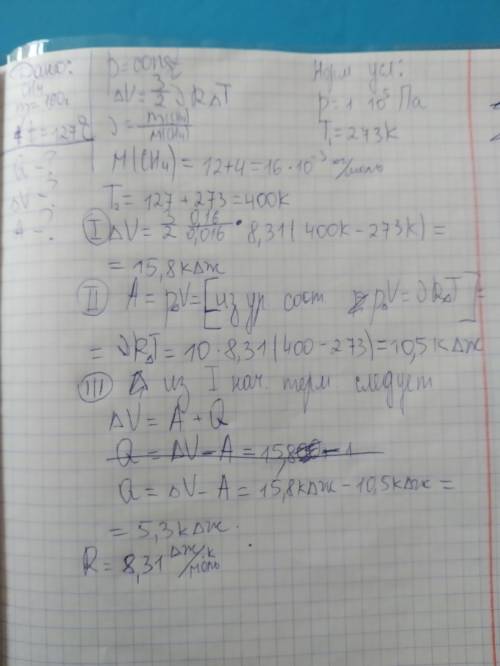 Дано:
CH₄
m=160г
t=127°C
Q-?
ΔV-?
A-?
p=const
ΔV=3/2 νRΔT
ν=m(CH₄)/M(CH₄)
Норм усл:
p=1 10⁵ Па
T₁=273К
M(CH₄)=12+4=16·10⁻³ кг/моль
T₂=127+273=400К
I ΔV=3/2 0,16/0,016·8,31(400К-273К)=
=15,8кДж
II A=pV=[из ур сост pV=νRΔT]=
=νRΔT=10·8,31(400-273)=10,5кДж
III из I нач. терм следует
ΔV=A+Q
Q=ΔV-A=15,8
Q=ΔV-A=15,8кДж-10,5кДж=
=5,3кДж.
R=8,31 Дж·к/моль